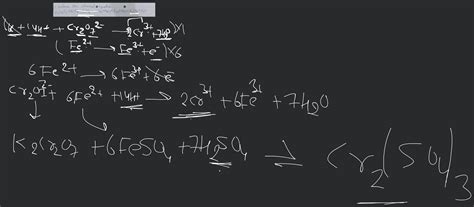 6e⁻ + 14H⁺ + Cr₂O₇²⁻ → 2Cr³⁺ + 7H₂O) × 1
(Fe²⁺ → Fe³⁺ + e⁻) × 6
6Fe²⁺ → 6Fe³⁺ + 6e⁻
Cr₂O₇²⁻ + 6Fe²⁺ + 14H⁺ → 2Cr³⁺ + 6Fe³⁺ + 7H₂O
K₂Cr₂O₇ + 6FeSO₄ + 7H₂SO₄ ⇌ Cr₂(SO₄)₃